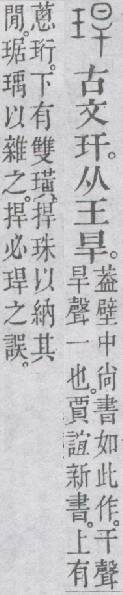 𤥚古文玕。从王旱。
葢壁中尙書如此作。干聲
旱聲一也。賈誼新書。上有
蔥珩。下有雙璜。捍珠以納其
閒。琚瑀以雜之。捍必琾之誤。